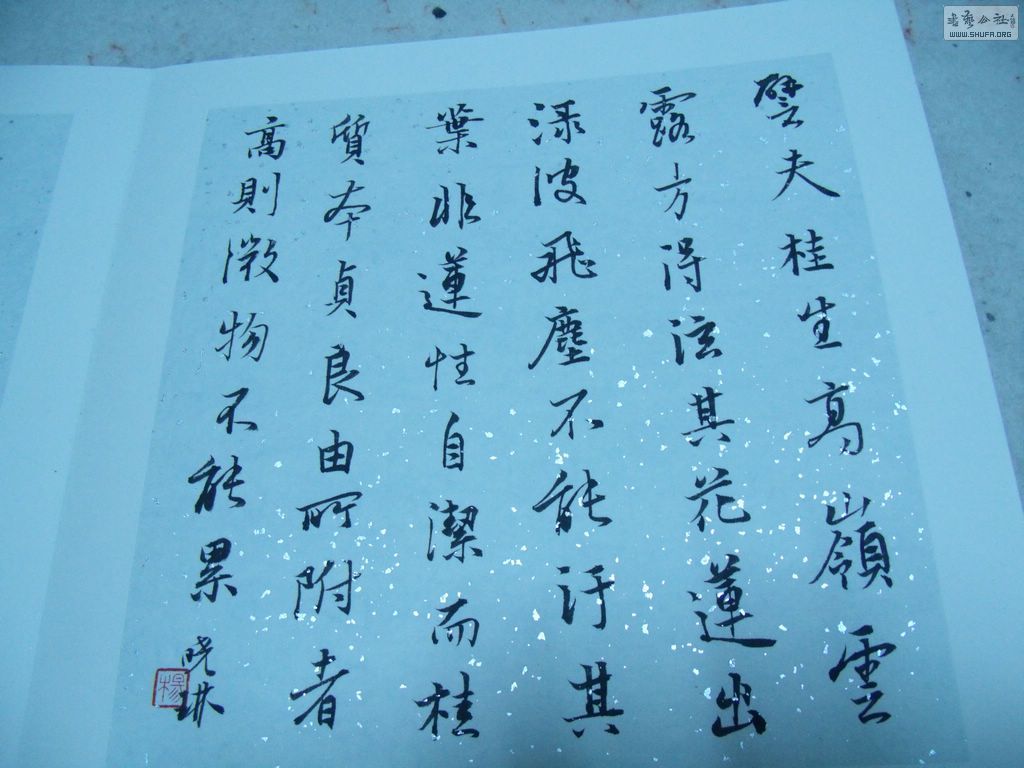 譬夫桂生高嶺雲
露方得泫其花蓮出
淥波飛塵不能汙其
葉非蓮性自潔而桂
質本貞良由所附者
高則微物不能累
晓琳
楊
書藝公社
WWW.SHUFA.ORG